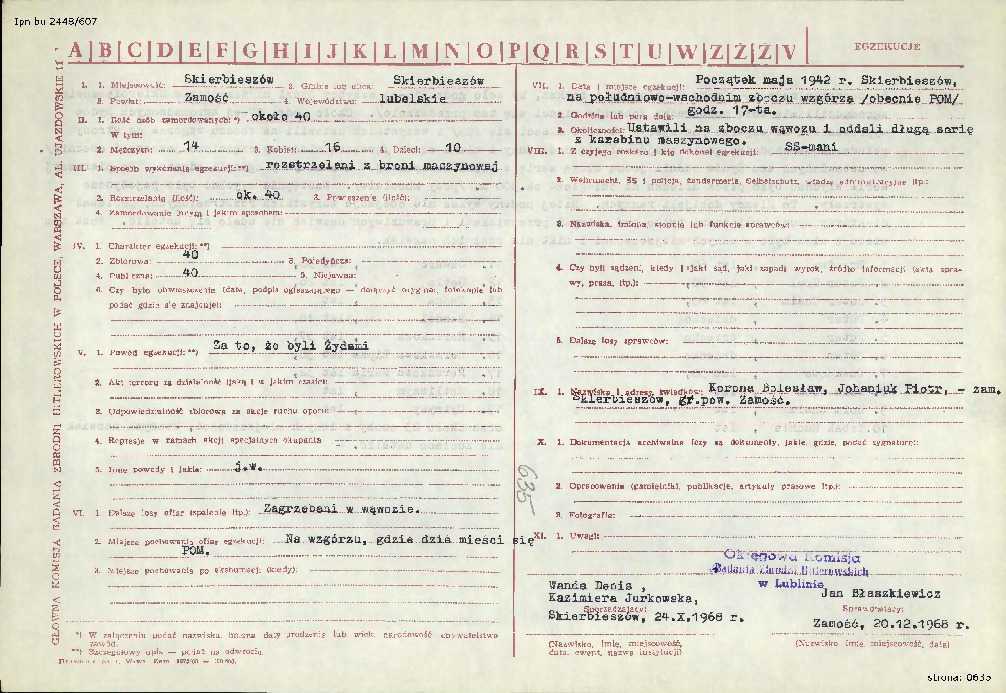 Ipn bu 2448/607
A|B|C|D|E|F|G|H|I|J|K|L|M|N|O|P|Q|R|S|T|U|W|Z|Ź|Ż|V
EGZEKUCJE
GŁÓWNA KOMISJA BADANIA ZBRODNI HITLEROWSKICH W POLSCE, WARSZAWA, AL. UJAZDOWSKIE 11
I. 1. Miejscowość: Skierbieszów 2. Gmina lub ulica: Skierbieszów
3. Powiat: Zamość 4. Województwo: lubelskie
II. 1. Ilość osób zamordowanych: *) około 40
W tym:
2. Mężczyzn: 14 3. Kobiet: 16 4. Dzieci: 10
III. 1. Sposób wykonania egzekucji: **) rozstrzelani z broni maczynowej
2. Rozstrzelanie (ilość): ok. 40 3. Powieszenie (ilość):
4. Zamordowanie innym i jakim sposobem:
IV. 1. Charakter egzekucji: **)
2. Zbiorowa: 40 3. Pojedyńcza:
4. Publiczna: 40 5. Niejawna:
6. Czy było obwieszczenie (data, podpis ogłaszającego — dołączyć oryginał, fotokopię lub
podać gdzie się znajduje):
V. 1. Powód egzekucji: **) Za to, że byli Żydami
2. Akt terroru za działalność (jaką i w jakim czasie):
3. Odpowiedzialność zbiorowa za akcje ruchu oporu:
4. Represje w ramach akcji specjalnych okupanta
5. Inne powody i jakie: j.w.
VI. 1. Dalsze losy ofiar (spalenie itp.): Zagrzebani w wąwozie.
2. Miejsce pochowania ofiar egzekucji: Na wzgórzu, gdzie dzia mieści się
POM.
3. Miejsce pochowania po ekshumacji (kiedy):
*) W załączeniu podać nazwiska, imiona, daty urodzenia lub wiek, narodowość, obywatelstwo
zawód.
**) Szczegółowy opis — podać na odwrocie.
VII. 1. Data i miejsce egzekucji: Początek maja 1942 r. Skierbieszów,
na południowo-wschodnim zboczu wzgórza /obecnie POM/
2. Godzina lub pora dnia: godz. 17-ta.
3. Okoliczności: Ustawili na zboczu wąwozu i oddali długą serię
z karabinu maszynowego.
VIII. 1. Z czyjego rozkazu i kto dokonał egzekucji: SS-mani
2. Wehrmacht, SS i policja, żandarmeria, Selbstschutz, władze administracyjne itp.:
3. Nazwiska, imiona, stopnie lub funkcje sprawców:
4. Czy byli sądzeni, kiedy i jaki sąd, jaki zapadł wyrok, źródło informacji (akta spra-
wy, prasa, itp.):
5. Dalsze losy sprawców:
IX. 1. Nazwiska i adresy świadków: Korona Bolesław, Johaniuk Piotr, - zam.
Skierbieszów, gr.pow. Zamość.
X. 1. Dokumentacja archiwalna (czy są dokumenty, jakie, gdzie, podać sygnaturę):
2. Opracowania (pamiętniki, publikacje, artykuły prasowe itp.):
3. Fotografie:
635
XI. 1. Uwagi:
Okręgowa Komisja
Badania Zbrodni Hitlerowskich
w Lublinie
Wanda Denis ,
Kazimiera Jurkowska,
Sporządzający:
Skierbieszów, 24.X.1968 r.
(Nazwisko, imię, miejscowość,
data, ewent. nazwa instytucji)
Jan Błaszkiewicz
Sprawdzający:
Zamość, 20.12.1968 r.
(Nazwisko imię, miejscowość, data)
strona: 0635